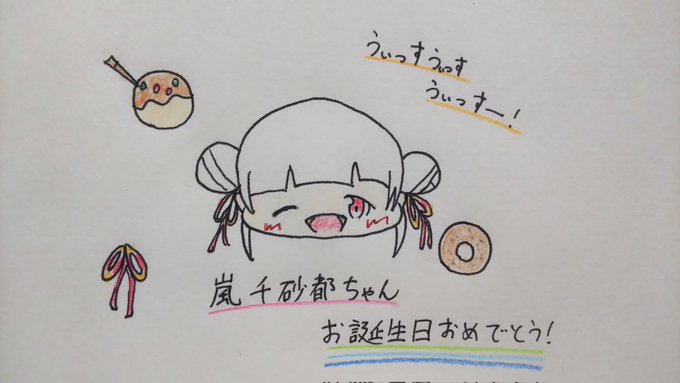 うぃっすうぃっす
うぃっすー!
嵐千砂都ちゃん
お誕生日おめでとう!